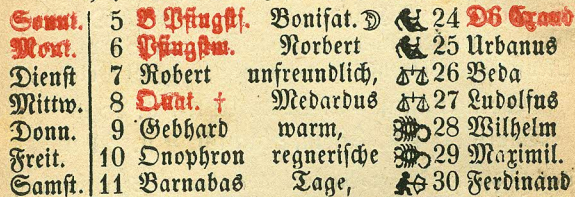 Sonnt. 5 B Pfingstf. Bonifat. ☽ 24 D6 Exaud
Mont. 6 Pfingstm. Norbert 25 Urbanus
Dienst 7 Robert unfreundlich, 26 Beda
Mittw. 8 Quat. † Medardus 27 Ludolfus
Donn. 9 Gebhard warm, 28 Wilhelm
Freit. 10 Onophron regnerische 29 Maximil.
Samst. 11 Barnabas Tage, 30 Ferdinand